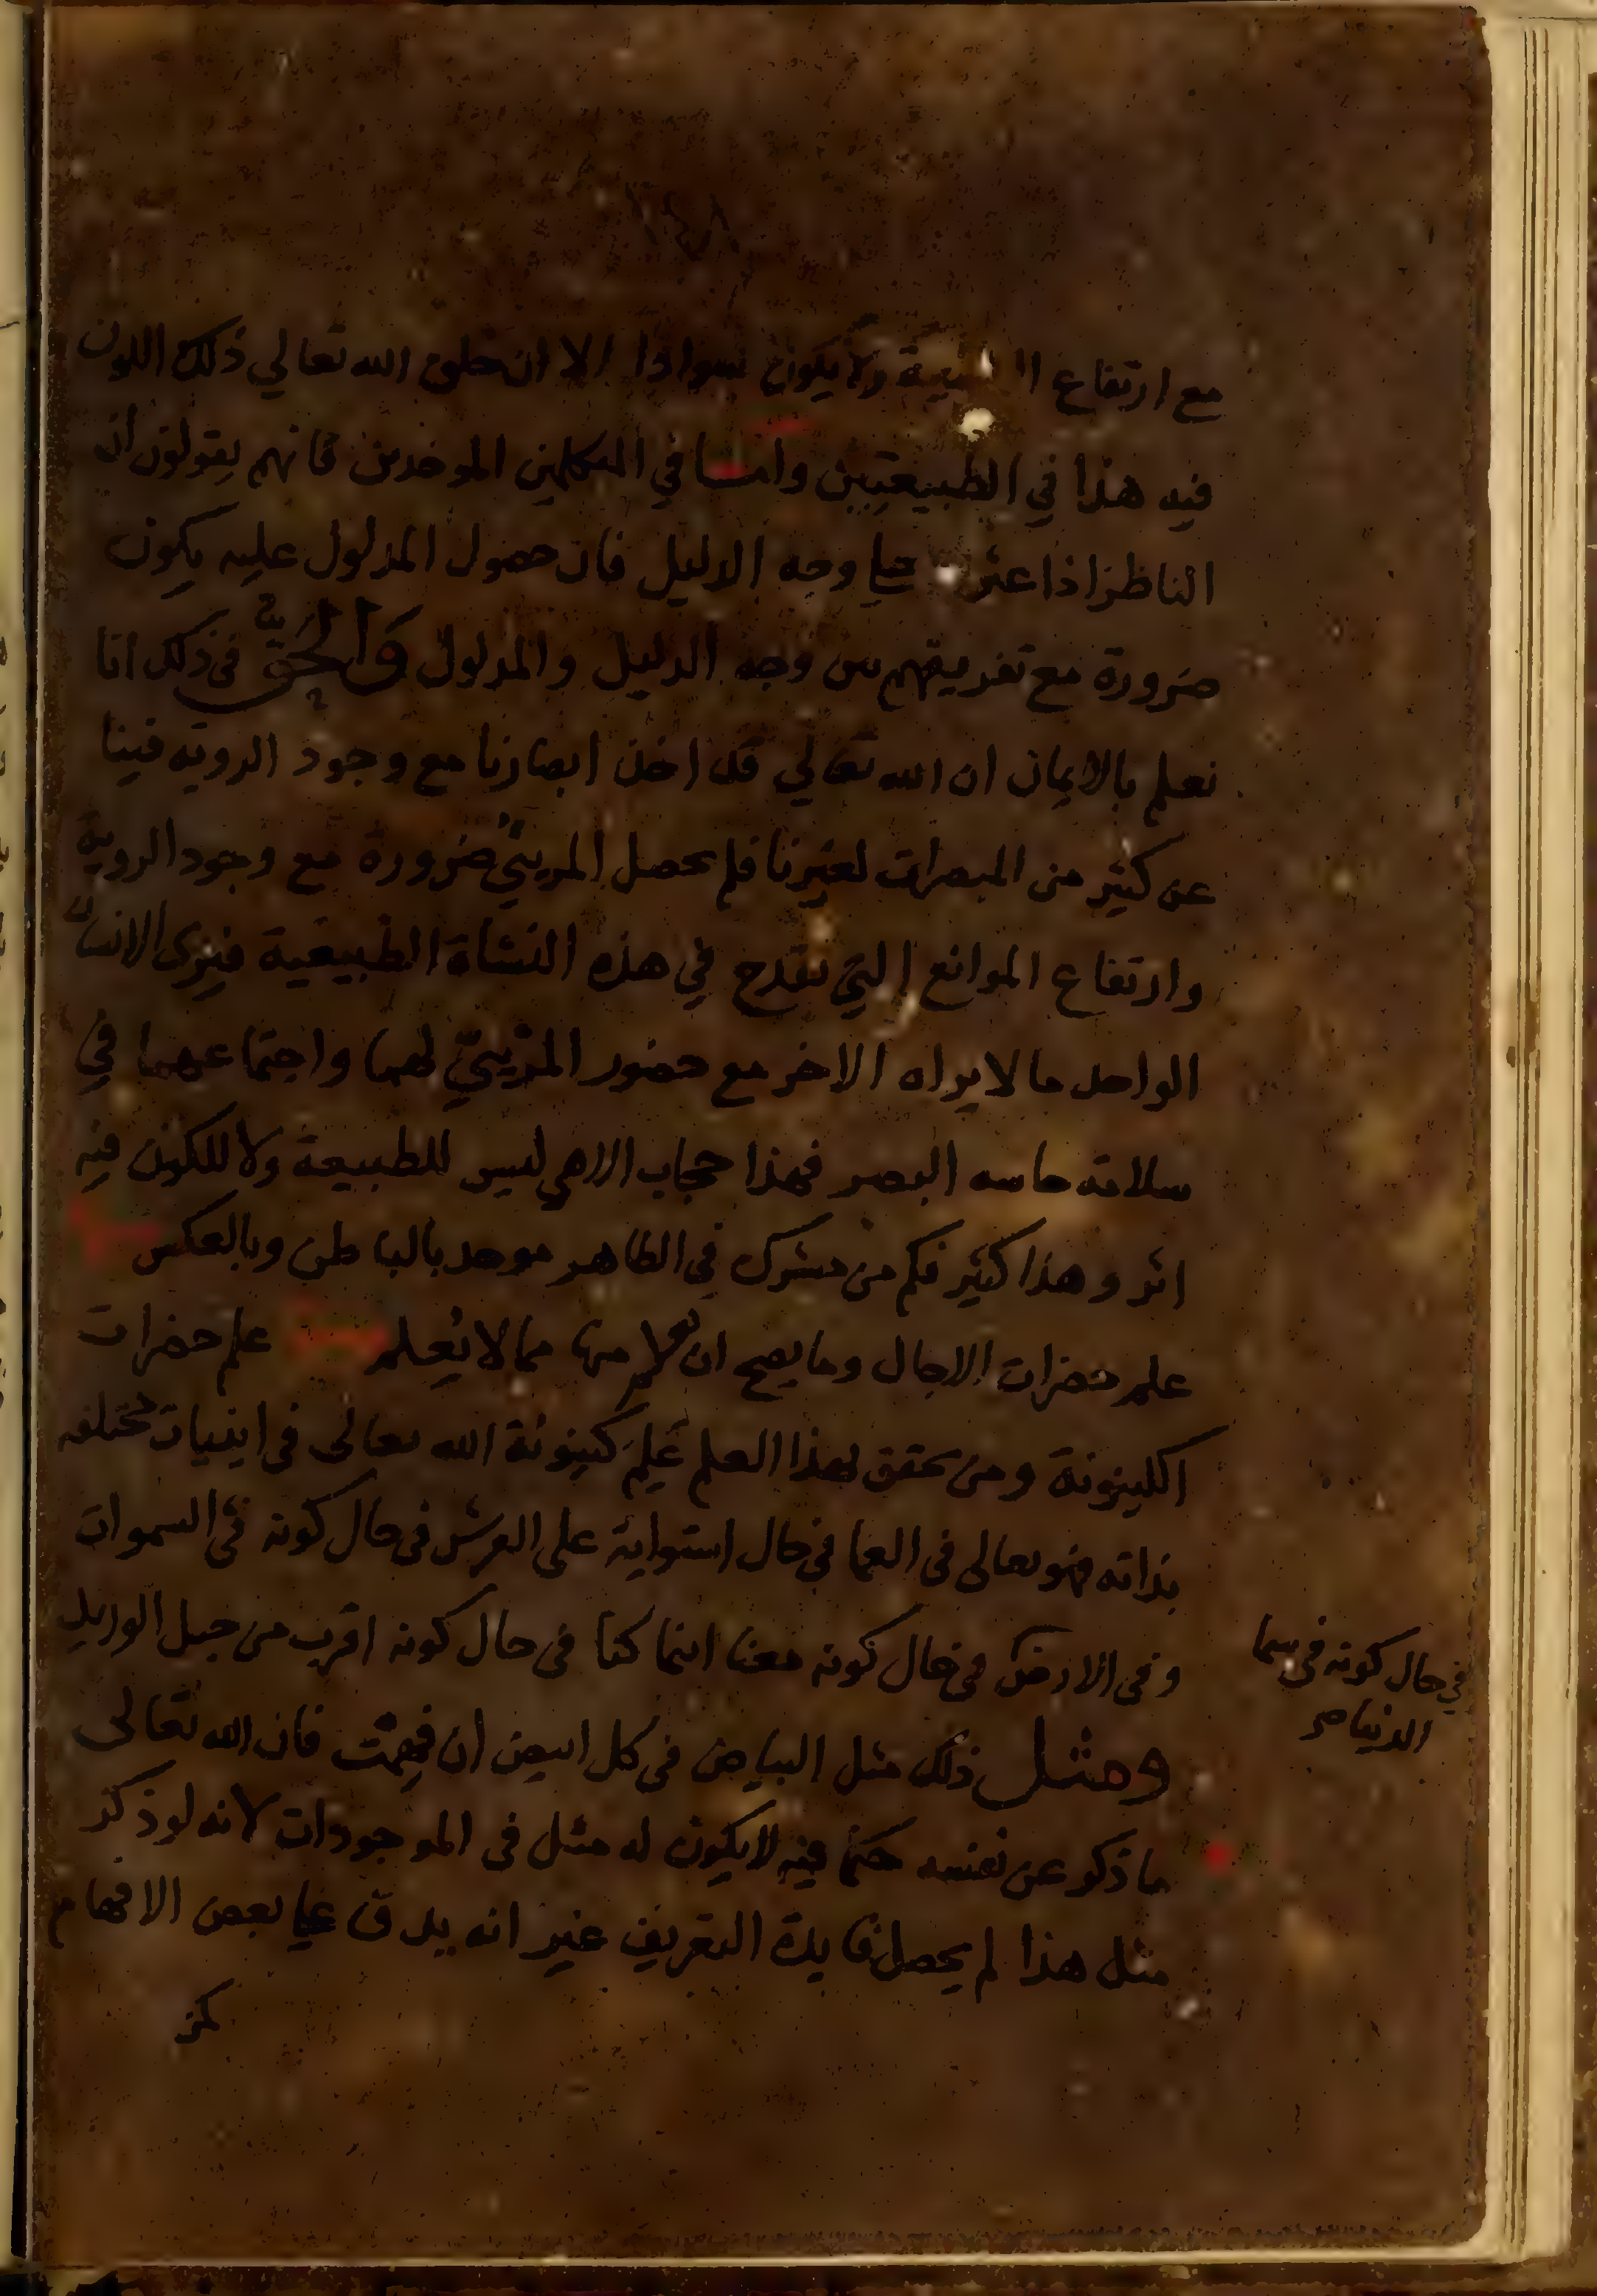 مع ارتفاع ولا يكون سوادا الا ان خلق الله تعالي ذلك اللون
فيه هذا في الطبيعيين واما في المتكلمين الموحدين فانهم يقولون ان
الناظر اذا عثر علي وجه الدليل فان حصول المدلول عليه يكون
ضرورة مع تفريقهم بين وجه الدليل والمدلول والحق في ذلك انا
نعلم بالايمان ان الله تعالي قد اخذ ابصارنا مع وجود الروية فينا
عن كثير من المبصرات لغيرنا فلم يحصل المريئ ضرورة مع وجود الروية
وارتفاع الموانع التي تقدح في هذه النشاة الطبيعية فيرى الانسان
الواحد ما لا يراه الاخر مع حضور المريئ لهما واجتماعهما في
سلامة حاسه البصر فهذا حجاب الاهي ليس للطبيعة ولا للكون فيه
اثر وهذا كثير فكم من مشرك في الظاهر موحد بالباطن وبالعكس
علم حضرات الاجال وما يصح ان يعلم منها مما لا يُعلم علم حضرات
الكينونة ومن تحقق بهذا العلم عَلِمَ كينونة الله تعالى في اينيات مختلفه
بذاته فهو تعالى في العما في حال استوايه على العرش في حال كونه في السموات
وفي الارض في حال كونه معنا اينما كنا في حال كونه اقرب من حبل الوريد
في حال كونه في سما
الدنيا صح
ومثل ذلك مثل البياض في كل ابيض ان فهمت فان الله تعالى
ما ذكر عن نفسه حكما فيه لا يكون له مثل في الموجودات لانه لو ذكر
مثل هذا لم يحصل فايدة التعريف غير انه يدق علي بعض الافهام